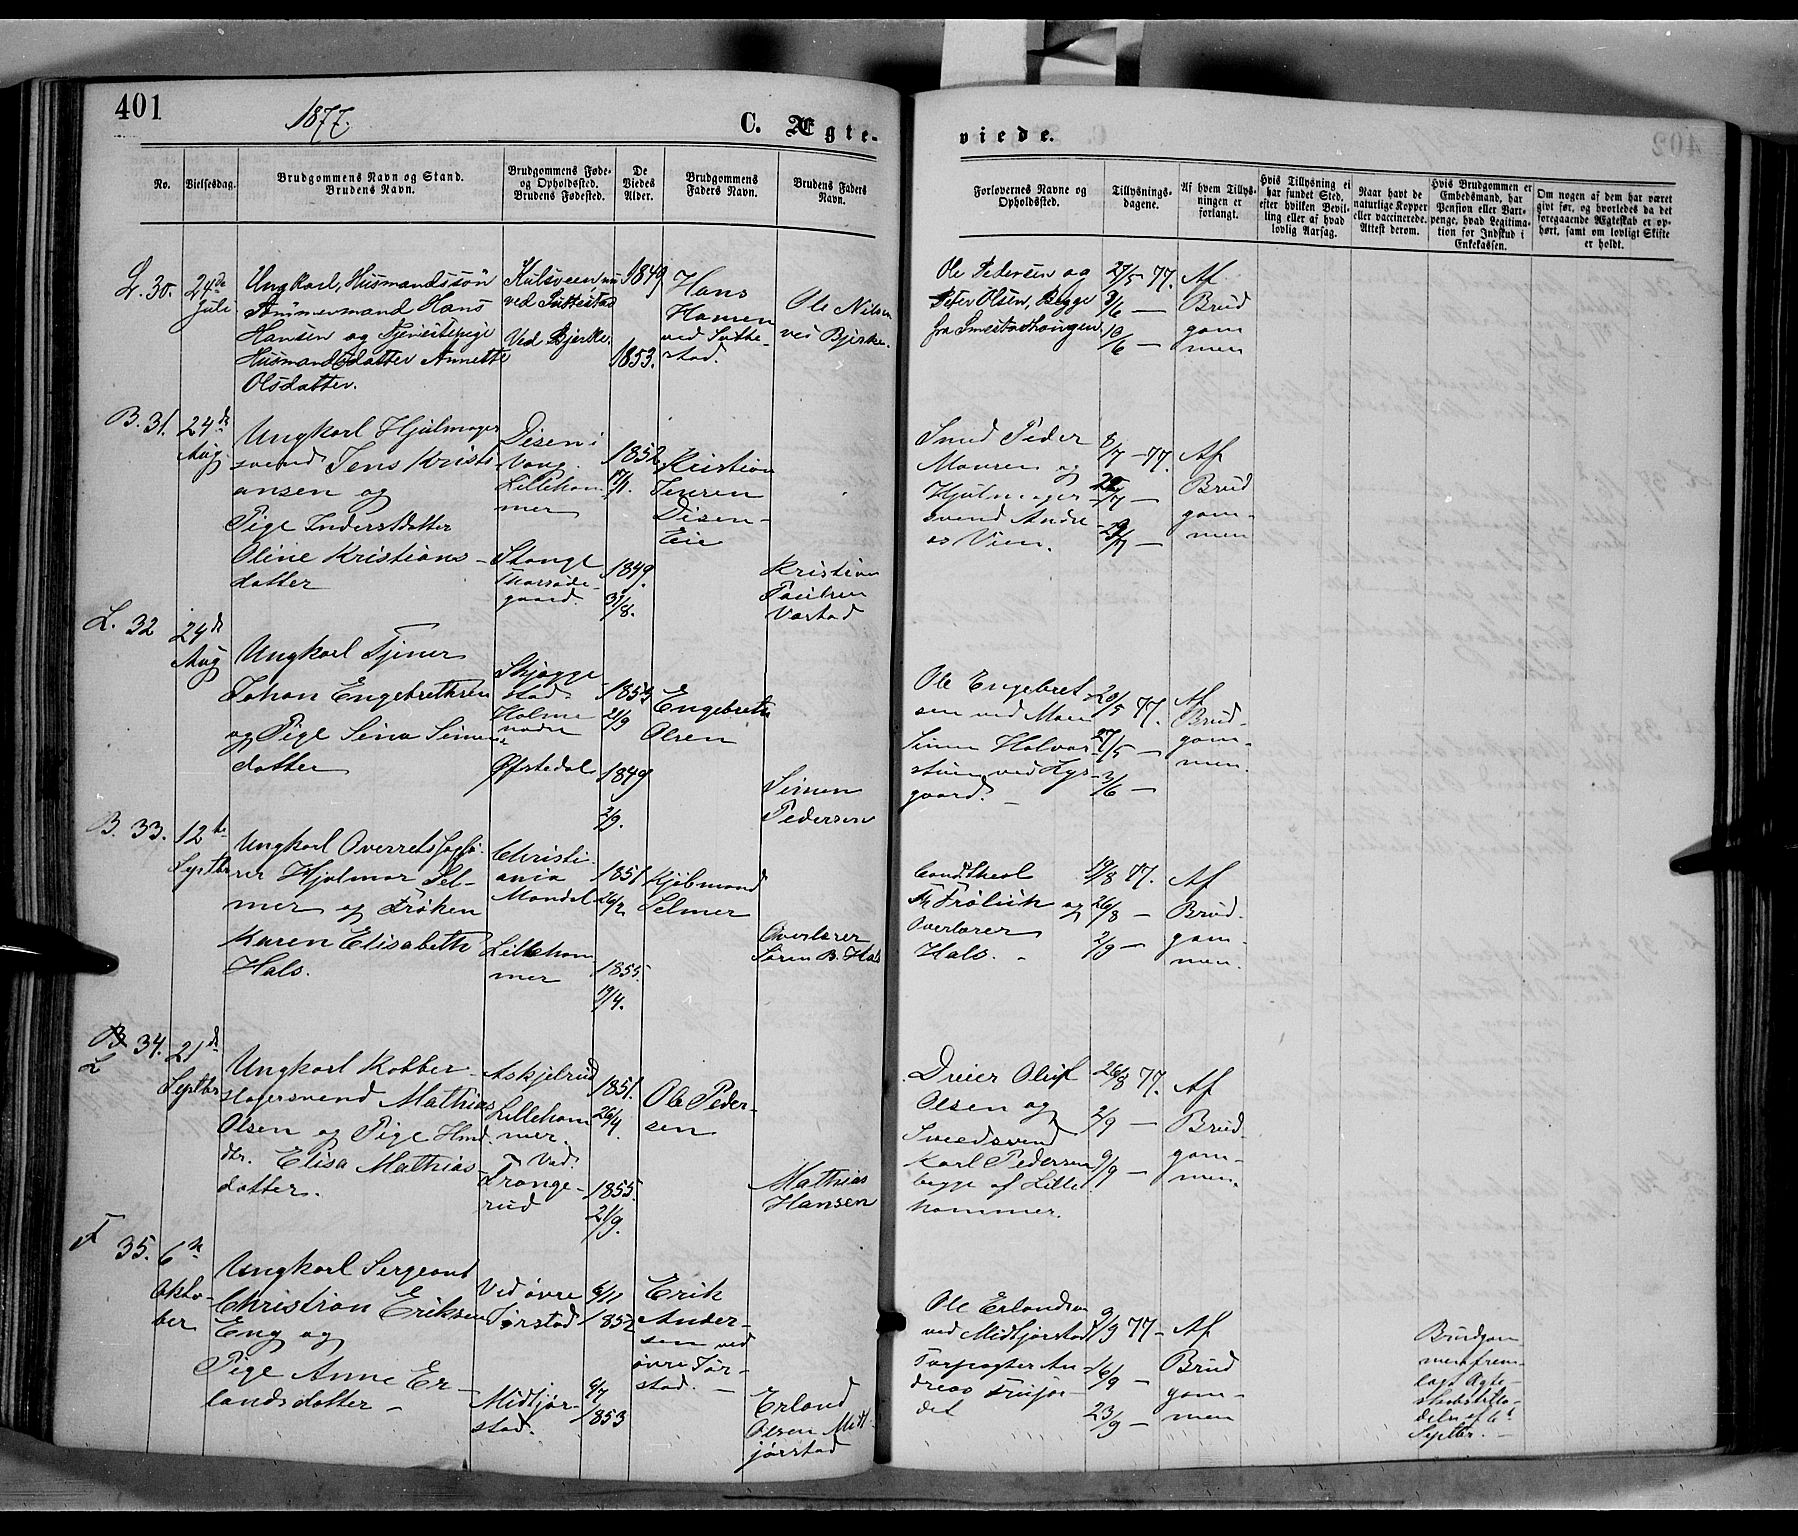 401
1877.
C. Ægte-
viede.
No.
Vielsesdag.
Brudgommens Navn og Stand.
Brudens Navn.
Brudgommens Føde-
og Opholdssted.
Brudens Fødested.
De
Viedes
Alder.
Brudgommens
Faders Navn.
Brudens Faders
Navn.
Forlovernes Navne og
Opholdssted.
Tillysnings-
dagene.
Af hvem Tillys-
ningen er
forlangt.
Hvis Tillysning ei
har fundet Sted,
efter hvilken Bevil-
ling eller af hvad
lovlig Aarsag.
Naar havt de
naturlige Kopper
eller vaccinerede.
Attest derom.
Hvis Brudgommen er
Embedsmand, har
Pension eller Vart-
penge, hvad Legitima-
tion for Indskud i
Enkekassen.
Om nogen af dem har været
givt før, og hvorledes da det
foregaaende Ægteskab er op-
hørt, samt om lovligt Skifte
er holdt.
L. 30.
24de
Juli
Ungkarl, Husmandssøn
Tømmermand Hans
Hansen og Tjenestepige
Husmandsdatter Annette
Olsdatter.
Kulsveen nu
ved Suttestad
Ved Bjerke
1849
1853.
Hans
Hansen
ved Sutte-
stad.
Ole Nilsen
ved Bjerke.
Ole Pedersen og
Peter Olsen, Begge
fra Smestadhaugen
27/5 77.
3/6 —
10/6 —
Af
Brud
gom
men
B. 31.
24de
Aug.
Ungkarl Hjulmager
svend Jens Kristi
ansen og
Pige Inderstdatter
Oline Kristians-
datter
Disen i
Vang.
Lilleham
mer
Stange
gaard.
1852
17/1.
1849.
31/8.
Kristian
Jensen
Disen-
Eie
Kristian
Paulsen
Vastad
Smed Peder
Mauren og
Hjulmager
svend Andre
as Vien.
8/7 —77.
22/7 —
29/7 —
Af
Brud
gom-
men
L. 32
24de
Aug
Ungkarl Tjener
Johan Engebrethsen
og Pige Sina Simens
datter
Skjøgge
stad
Øfstedal
1853
21/9
1849
2/9.
Engebreth
Olsen
Simen
Pedersen
Ole Engebret
sen ved Moen
Simen Halvor
stuen ved Lys-
gaard. —
20/5 77.
27/5 —
3/6 —
Af
Brud-
gom-
men.
B. 33.
12te
Septbr
Ungkarl Overretssagfø-
rer Hjalmar Sel-
mer og Frøken
Karen Elisabeth
Hals.
Christi-
ania
Mandal
Lilleham
mer
1851
26/2
1855.
19/4.
Kjøbmand
Selmer
Overlærer
Søren B. Hals
Cand. theol
Fr Frølich og
Overlærer
Hals. —
19/8 77.
26/8 —
2/9 —
Af
Brud-
gom-
men.
B 34.
L
21de
Septbr
Ungkarl Kobber-
slagersvend Mathias
Olsen og Pige Hmd
dtr. Elisa Mathias-
datter.
Askjelrud
Lilleham
mer.
Ved
Trange-
rud
1851.
26/4.
1855.
21/9.
Ole Peder-
sen
Mathias
Hansen
Dreier Oluf
Olsen og
Smedsvend
Karl Pedersen
begge af Lille
hammer.
26/8 77.
2/9 —
9/9 —
Af
Brud-
gom-
men.
F 35.
6te
Okto-
ber
Ungkarl Sergeant
Christian Eriksen
Eng og
Pige Anne Er-
landsdatter —
Ved øvre
Jørstad
Midtjør-
stad.
6/11
1852
6/7
1853
Erik
Ander-
sen ved
øvre Jør-
stad. —
Erland
Olsen Midt-
jørstad
Ole Erlandsen
ved Midtjørstad
Forpagter An-
dreas
det
9/9 77—
16/9 —
23/9 —
Af
Brud
gom-
men
Brudgom
men frem-
lagt Ægte-
skabstilla-
delse af 6te
Septbr. —